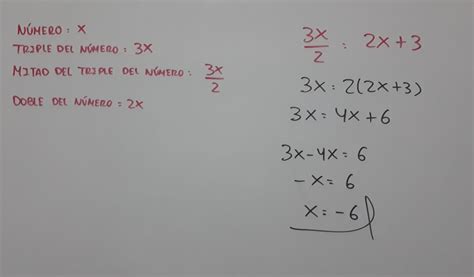 NÚMERO: X
TRIPLE DEL NÚMERO: 3X
MITAD DEL TRIPLE DEL NÚMERO: 3X/2
DOBLE DEL NÚMERO = 2X
3X/2 : 2X+3
3X : 2(2X+3)
3X = 4X+6
3X-4X = 6
-X = 6
X = -6